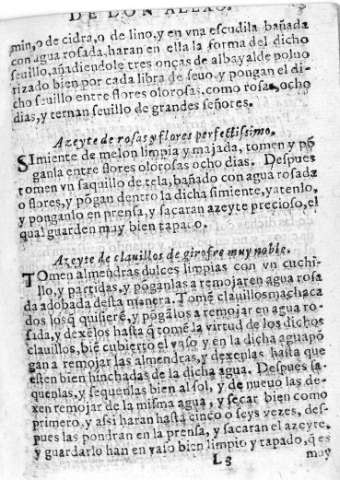 DE DON ALEXO.
min, o de cidra, o de lino, y en vna escudila bañada
con agua rosada, haran en ella la forma del dicho
seuillo, añadiendole tres onças de albayalde poluo
rizado bien por cada libra de seuo, y pongan el di-
cho seuillo entre flores olorosas, como rosas, ocho
dias, y ternan seuillo de grandes señores.
Azeyte de rosas y flores perfectissimo.
SImiente de melon limpia y majada, tomen y pō
ganla entre flores olorosas ocho dias. Despues
tomen vn saquillo de tela, bañado con agua rosada
o flores, y pōgan dentro la dicha simiente, y atenlo,
y ponganlo en prensa, y sacaran azeyte precioso, el
qual guarden muy bien tapado.
Azeyte de clauillos de girofre muy noble.
TOmen almendras dulces limpias con vn cuchi-
llo, y partidas, y pōganlas a remojar en agua rosa
da adobada desta manera. Tomē clauillos machaca
dos los q̄ quisierē, y pōgālos a remojar en agua ro-
sada, y dexēlos hasta q̄ tome la virtud de los dichos
clauillos, biē cubierto el vaso y en la dicha agua pō
gan a remojar las almendras, y dexenlas hasta que
esten bien hinchadas de la dicha agua. Despues sa-
quenlas, y sequenlas bien al sol, y de nueuo las de-
xen remojar de la misma agua, y secar bien como
primero, y assi haran hasta cinco o seys vezes, des-
pues las pondran en la prensa, y sacaran el azeyte,
y guardarlo han en vaso bien limpio y tapado, q̄ es
L3 muy